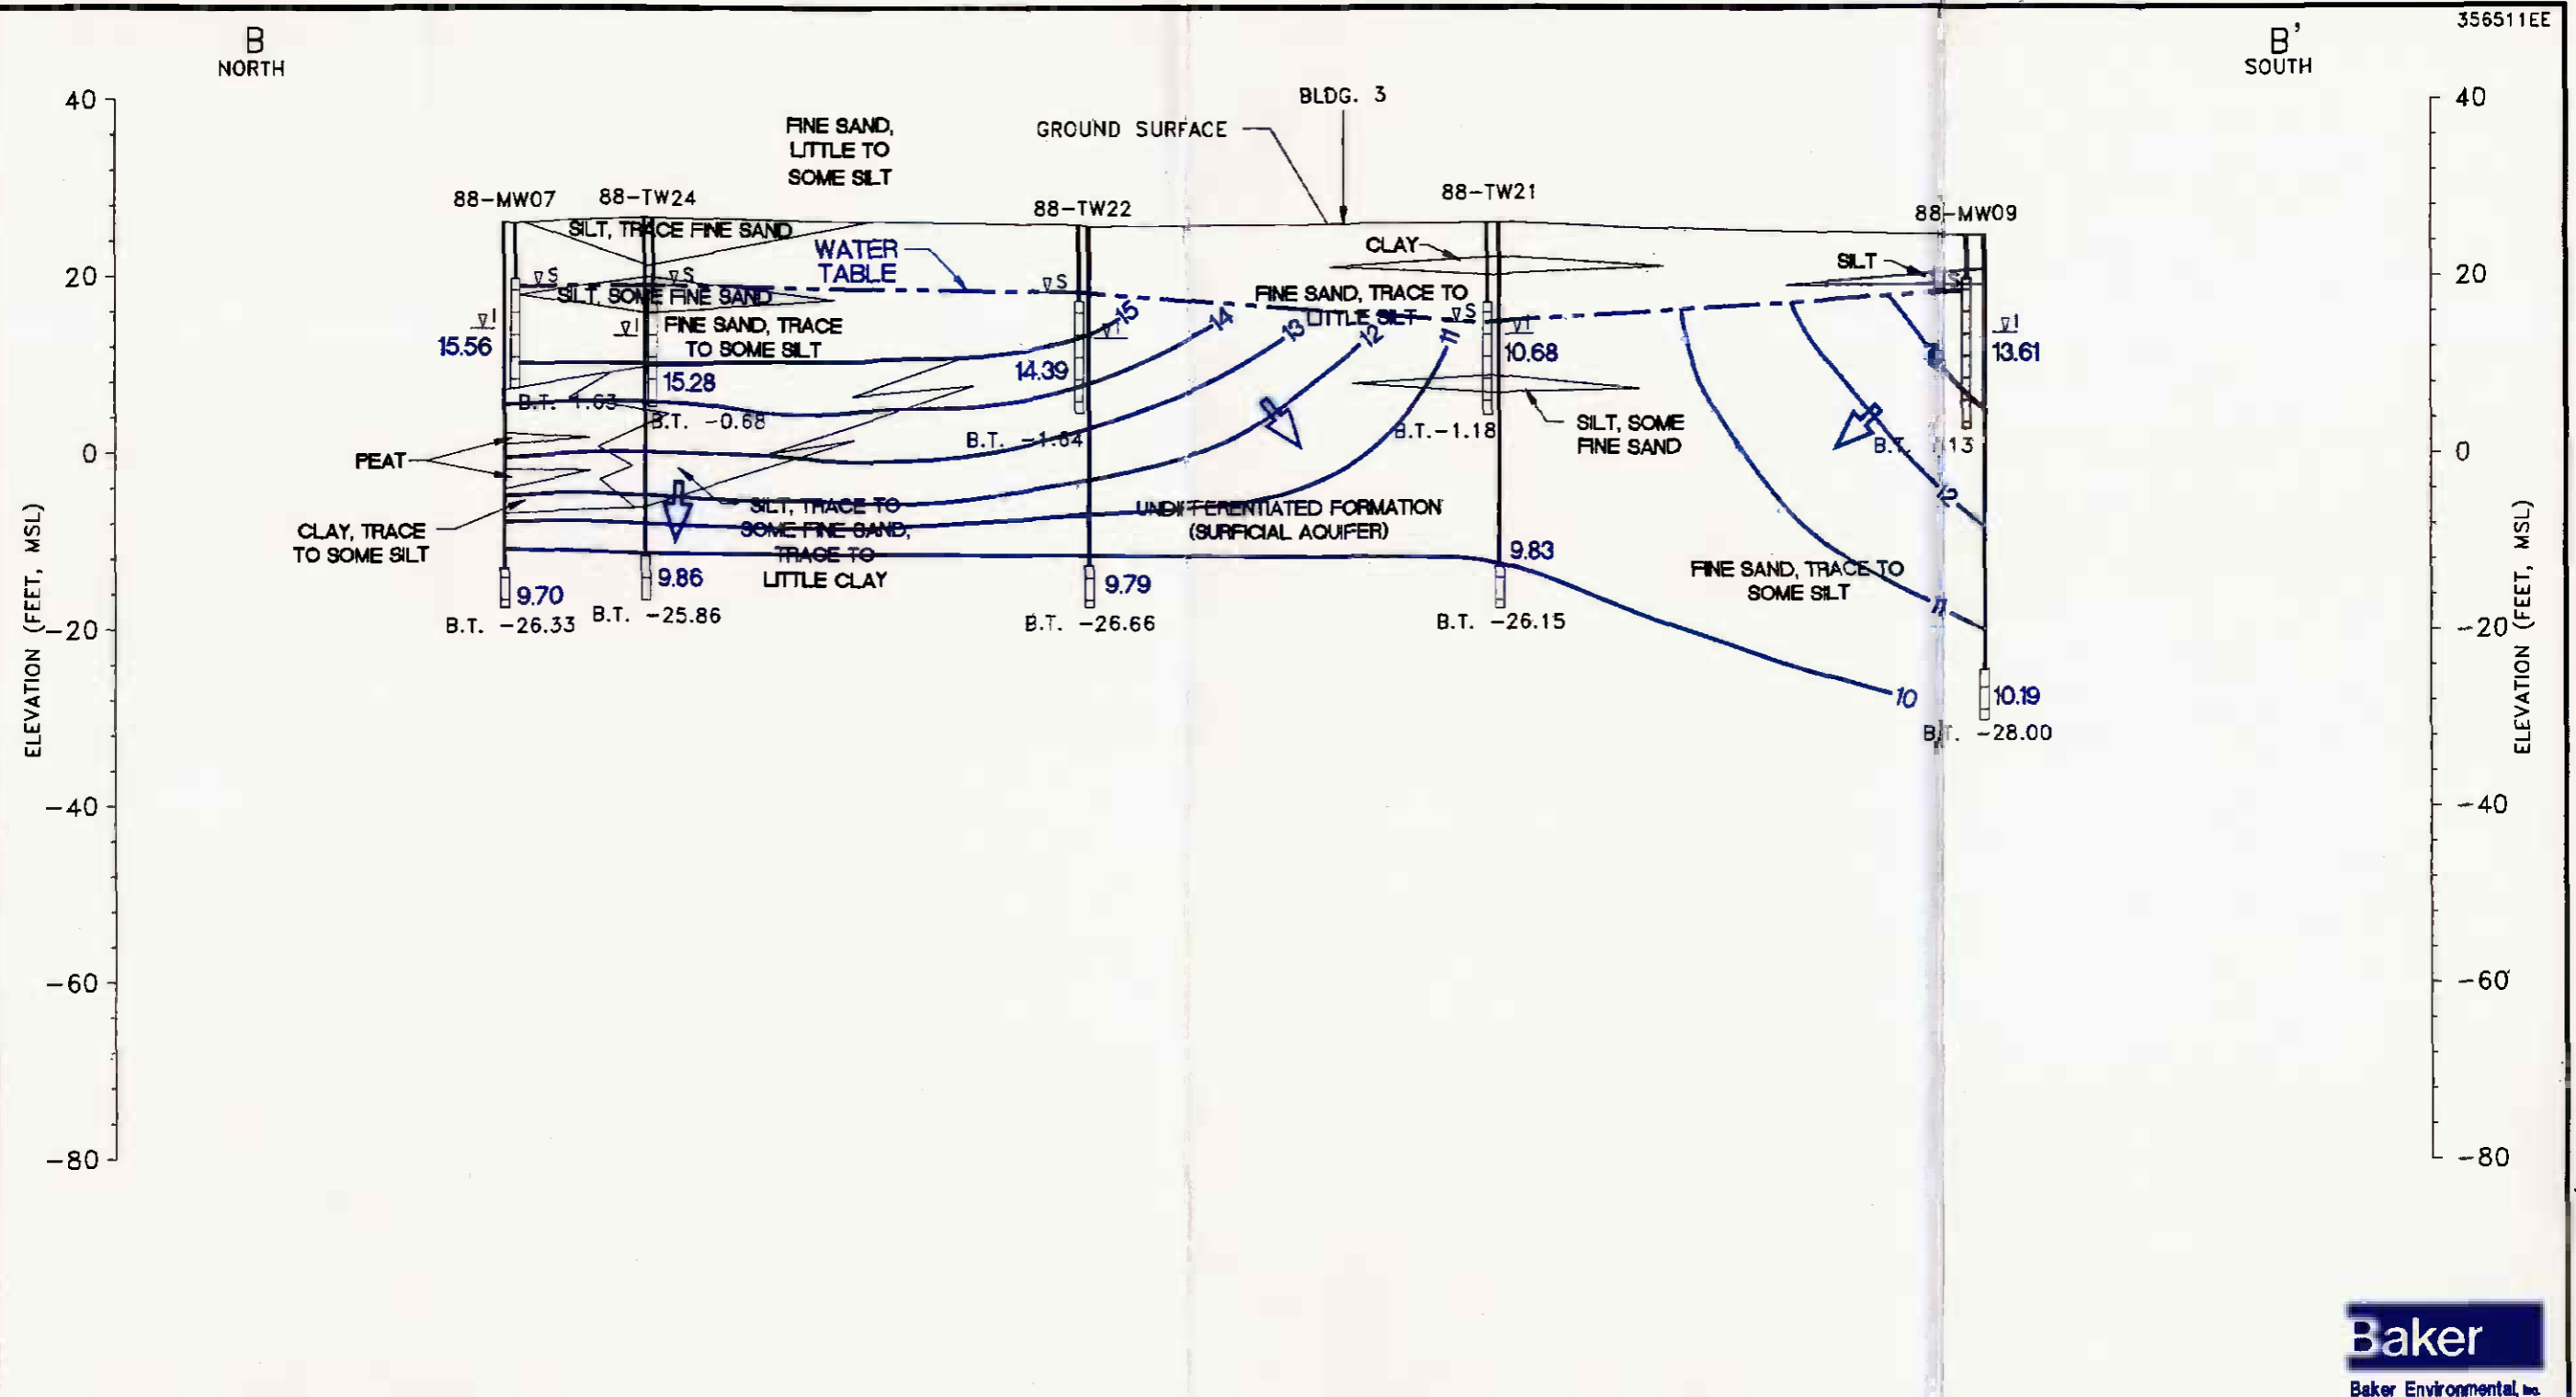 356511EE
B
NORTH
B'
SOUTH
40
20
0
-20
-40
-60
-80
ELEVATION (FEET, MSL)
FINE SAND,
LITTLE TO
SOME SILT
GROUND SURFACE
BLDG. 3
88-MW07
88-TW24
88-TW22
88-TW21
88-MW09
SILT, TRACE FINE SAND
WATER
TABLE
CLAY
SILT
S
S
S
S
SILT, SOME FINE SAND
FINE SAND, TRACE TO
LITTLE SILT
FINE SAND, TRACE
TO SOME SILT
I
I
I
I
15.56
15.28
14.39
10.68
13.61
15
14
13
12
11
B.T. -1.63
B.T. -0.68
B.T. -1.64
B.T. -1.18
B.T.
13
SILT, SOME
FINE SAND
PEAT
CLAY, TRACE
TO SOME SILT
SILT, TRACE TO
SOME FINE SAND,
TRACE TO
LITTLE CLAY
UNDIFFERENTIATED FORMATION
(SURFICIAL AQUIFER)
12
FINE SAND, TRACE TO
SOME SILT
11
10
9.70
9.86
9.79
9.83
10.19
B.T. -26.33
B.T. -25.86
B.T. -26.66
B.T. -26.15
B.T. -28.00
40
20
0
-20
-40
-60
-80
ELEVATION (FEET, MSL)
Baker
Baker Environmental, Inc.